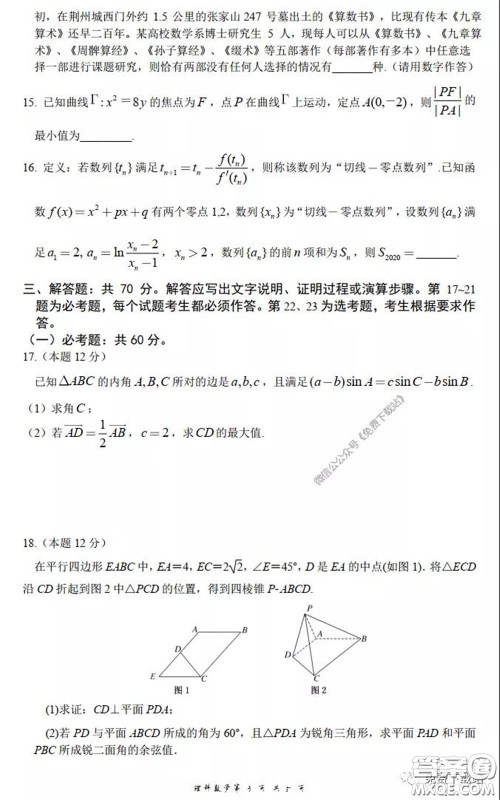 初，在荆州城西门外约 1.5 公里的张家山 247 号墓出土的《算数书》，比现有传本《九章
算术》还早二百年。某高校数学系博士研究生 5 人，现每人可以从《算数书》、《九章算
术》、《周髀算经》、《孙子算经》、《缀术》等五部著作（每部著作有多本）中任意选
择一部进行课题研究，则恰有两部没有任何人选择的情况有_______种.（请用数字作答）
15. 已知曲线Γ: x²=8y 的焦点为 F，点 P 在曲线Γ上运动，定点 A(0,−2)，则 |PF|/|PA| 的
最小值为_________.
16. 定义：若数列{tₙ}满足 tₙ₊₁ = tₙ − f(tₙ)/f′(tₙ)，则称该数列为“切线－零点数列”.已知函
数 f(x)=x²+px+q 有两个零点 1,2，数列{xₙ}为“切线－零点数列”，设数列{aₙ}满
足 a₁=2, aₙ = ln (xₙ−2)/(xₙ−1)，xₙ>2，数列{aₙ}的前 n 项和为 Sₙ，则 S₂₀₂₀ =_______.
三、解答题：共 70 分。解答应写出文字说明、证明过程或演算步骤。第 17~21
题为必考题，每个试题考生都必须作答。第 22、23 为选考题，考生根据要求作
答。
（一）必考题：共 60 分。
17.（本题 12 分）
已知△ABC 的内角 A,B,C 所对的边是 a,b,c，且满足(a−b)sin A = c sin C − b sin B.
（1）求角 C；
（2）若 AD = 1/2 AB，c=2，求 CD 的最大值.
微信公众号《免费下载站》
18.（本题 12 分）
在平行四边形 EABC 中，EA=4，EC=2√2，∠E=45°，D 是 EA 的中点(如图 1). 将△ECD
沿 CD 折起到图 2 中△PCD 的位置，得到四棱锥 P-ABCD.
A B D E C
图 1
P A B D C
图 2
(1)求证：CD⊥平面 PDA；
(2)若 PD 与平面 ABCD 所成的角为 60°，且△PDA 为锐角三角形，求平面 PAD 和平面
PBC 所成锐二面角的余弦值.
理科数学第 3 页 共 5 页
免费下载站
答案圈
MXQE.COM